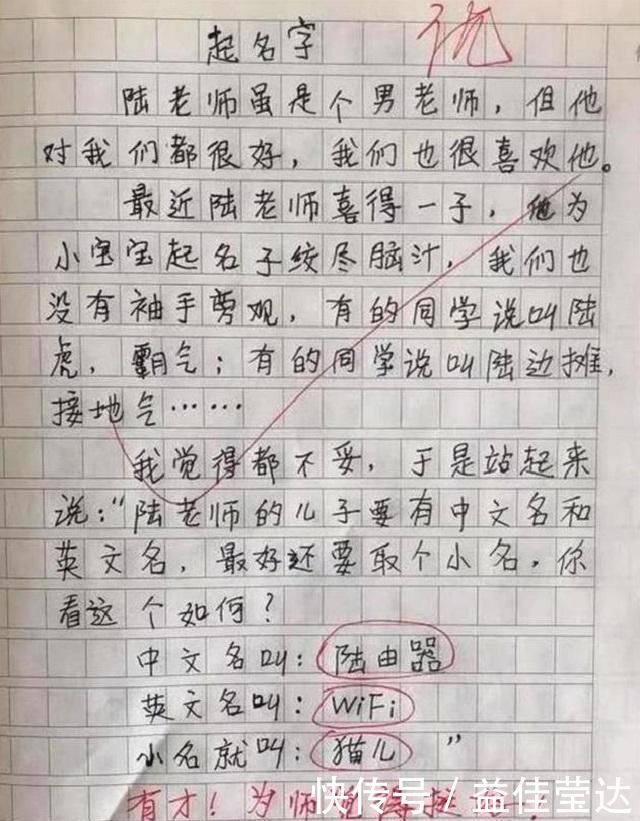 起名字
优
陆老师虽是个男老师，但他
对我们都很好，我们也很喜欢他。
最近陆老师喜得一子，他为
小宝宝起名子绞尽脑汁，我们也
没有袖手旁观，有的同学说叫陆
虎，霸气；有的同学说叫陆边摊，
接地气……
我觉得都不妥，于是站起来
说：“陆老师的儿子要有中文名和
英文名，最好还要取个小名，你
看这个如何？
中文名叫：陆由器
英文名叫：WiFi
小名就叫：猫儿”
有才！为师
快传号/益佳莹达